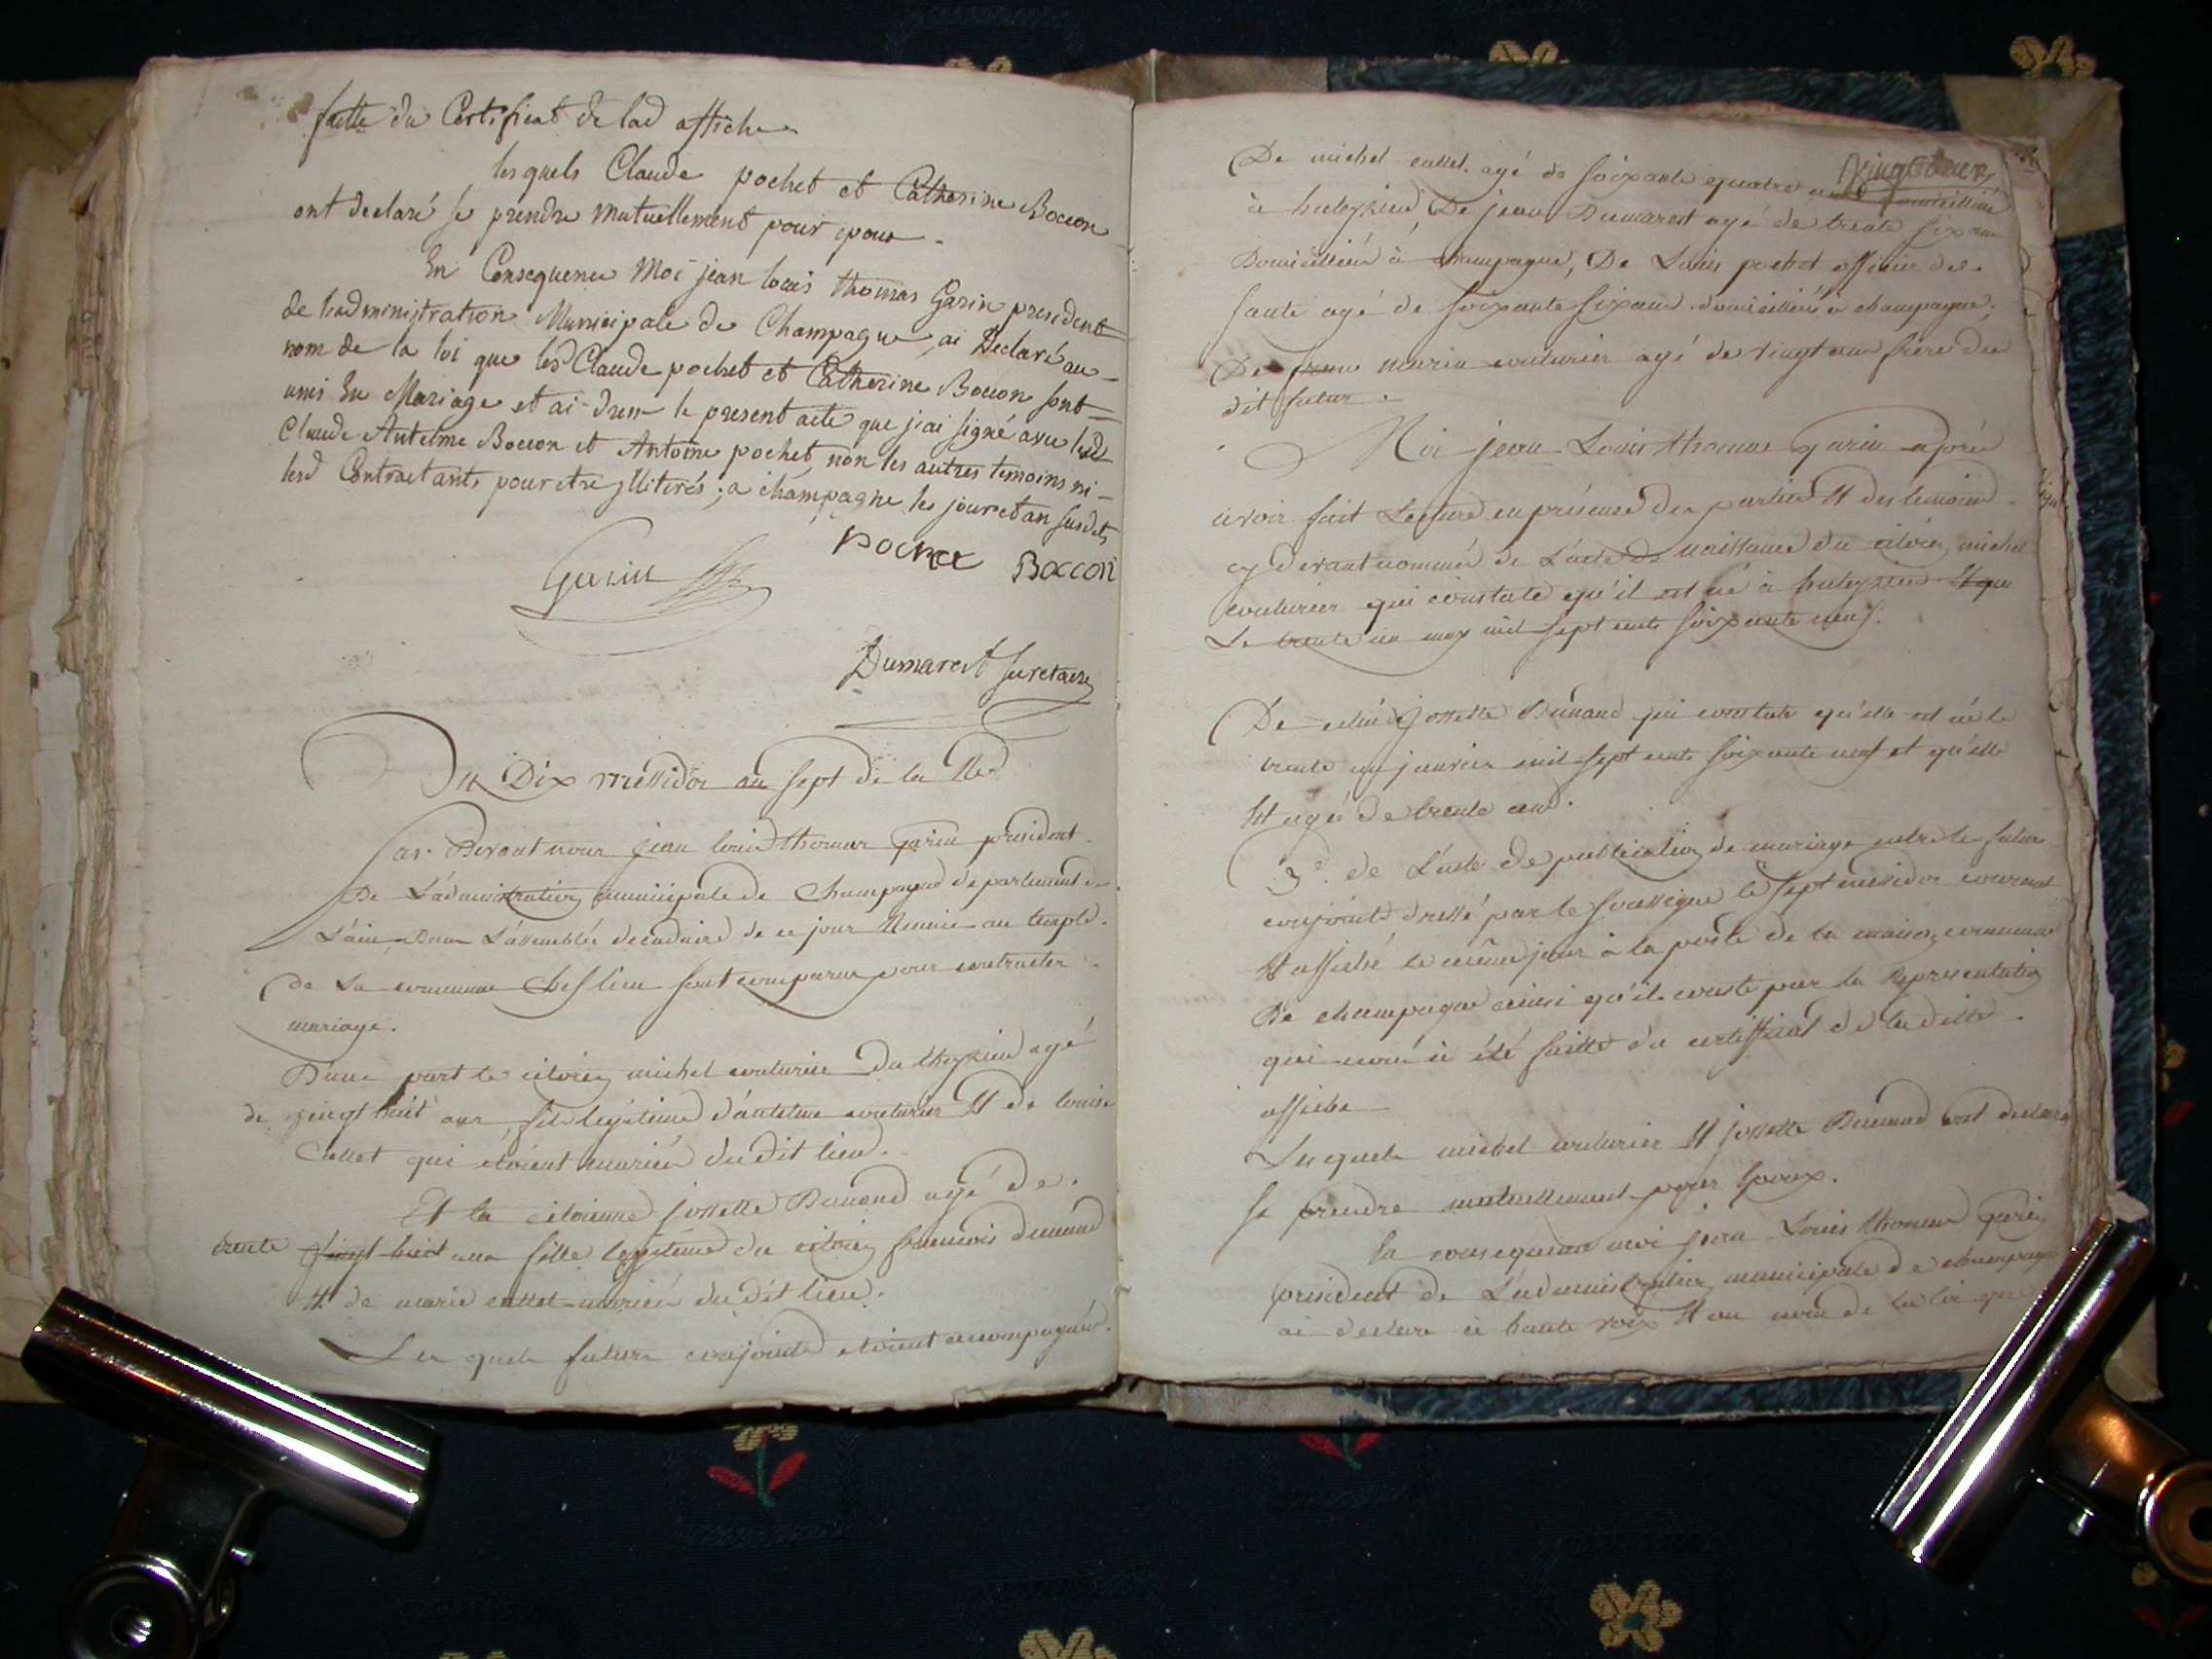 faitte du Certificat de lad affiche
lesquels Claude pochet et Catherine Boccon
ont declaré se prendre Mutuellement pour epoux
En Consequence Moi jean louis thomas Garin president
de ladministration Municipale de Champagne ai Declaré au
nom de la loi que lesd Claude pochet et Catherine Boccon sont
unis En Mariage et ai dressé le present acte que j'ai signé avec lesd
Claude Antelme Boccon et Antoine pochet non les autres temoins ni
lesd Contractants pour etre illiterés ; a champagne les jour et an susdits
pochet Boccon
Garin
Dumarest secretaire
Du Dix messidor an sept de la Red
Par Devant nous jean louis thomas garin president
De L'administration municipale de Champagne departement de
L'ain Dans L'assemblée decadaire de ce jour Reunie au temple
de La commune Chef lieu sont comparus pour contracter
mariage.
D'une part le citoien michel couturier agé
de vingt huit ans, fils legitime d'antelme couturier et de louise
Cullet qui etoient mariés du dit lieu.
Et la citoienne josette Dunand agé de
trente vingt huit ans fille legitime du citoien francois dunand
et de marie cullet mariés du dit lieu.
Les quels futurs conjoints etoient accompagnés
vingt deux
De michel cullet agé de soixante quatre ans domicillié
à huteyrieu, De jean Dumarest agé de trente six ans
Domicillié à champagne, De Louis pochet officier de
santé agé de soixante six ans domicilliés a champagne,
De marin couturier agé de vingt ans frere du
dit futur.
Moi jean Louis thomas garin aprés
avoir fait Lecture en présence des parties et des temoins
cy devant nommés de L'acte de naissance du citoien michel
couturier qui constate qu'il est né à huteyrieu et que
Le trente un may mil sept cents soixante neuf.
De celui de josette Dunand qui constate qu'elle est né le
trente un janvier mil sept cents soixante neuf et qu'elle
est agé de trente ans.
3° de L'acte de publication de mariage entre le futur
conjoints dressé par le soussigné le sept messidor courant
et affiché le même jour à la porte de la maison commune
De champagne ainsi qu'il conste par la Representation
qui nous à été faitte du certifficat de la ditte
affiche
Les quels michel couturier et josette Dunand ont declaré
se prendre mutuellement pour epoux.
En consequence moi jean Louis thomas garin
president de L'administration municipale de champagne
ai declaré à haute voix et au nom de la loi que